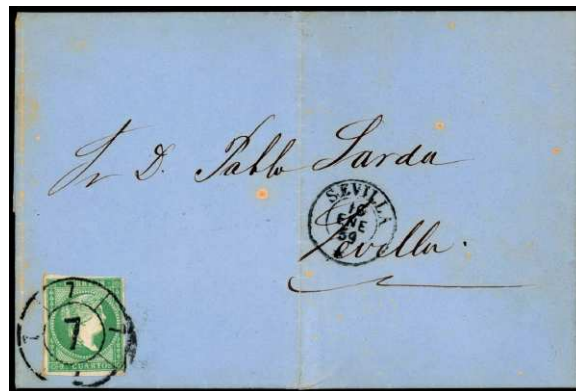 Sr D. Pablo Sarda
SEVILLA
16
ENE
59
Sevilla.
7
7
7
7
CUARTOS